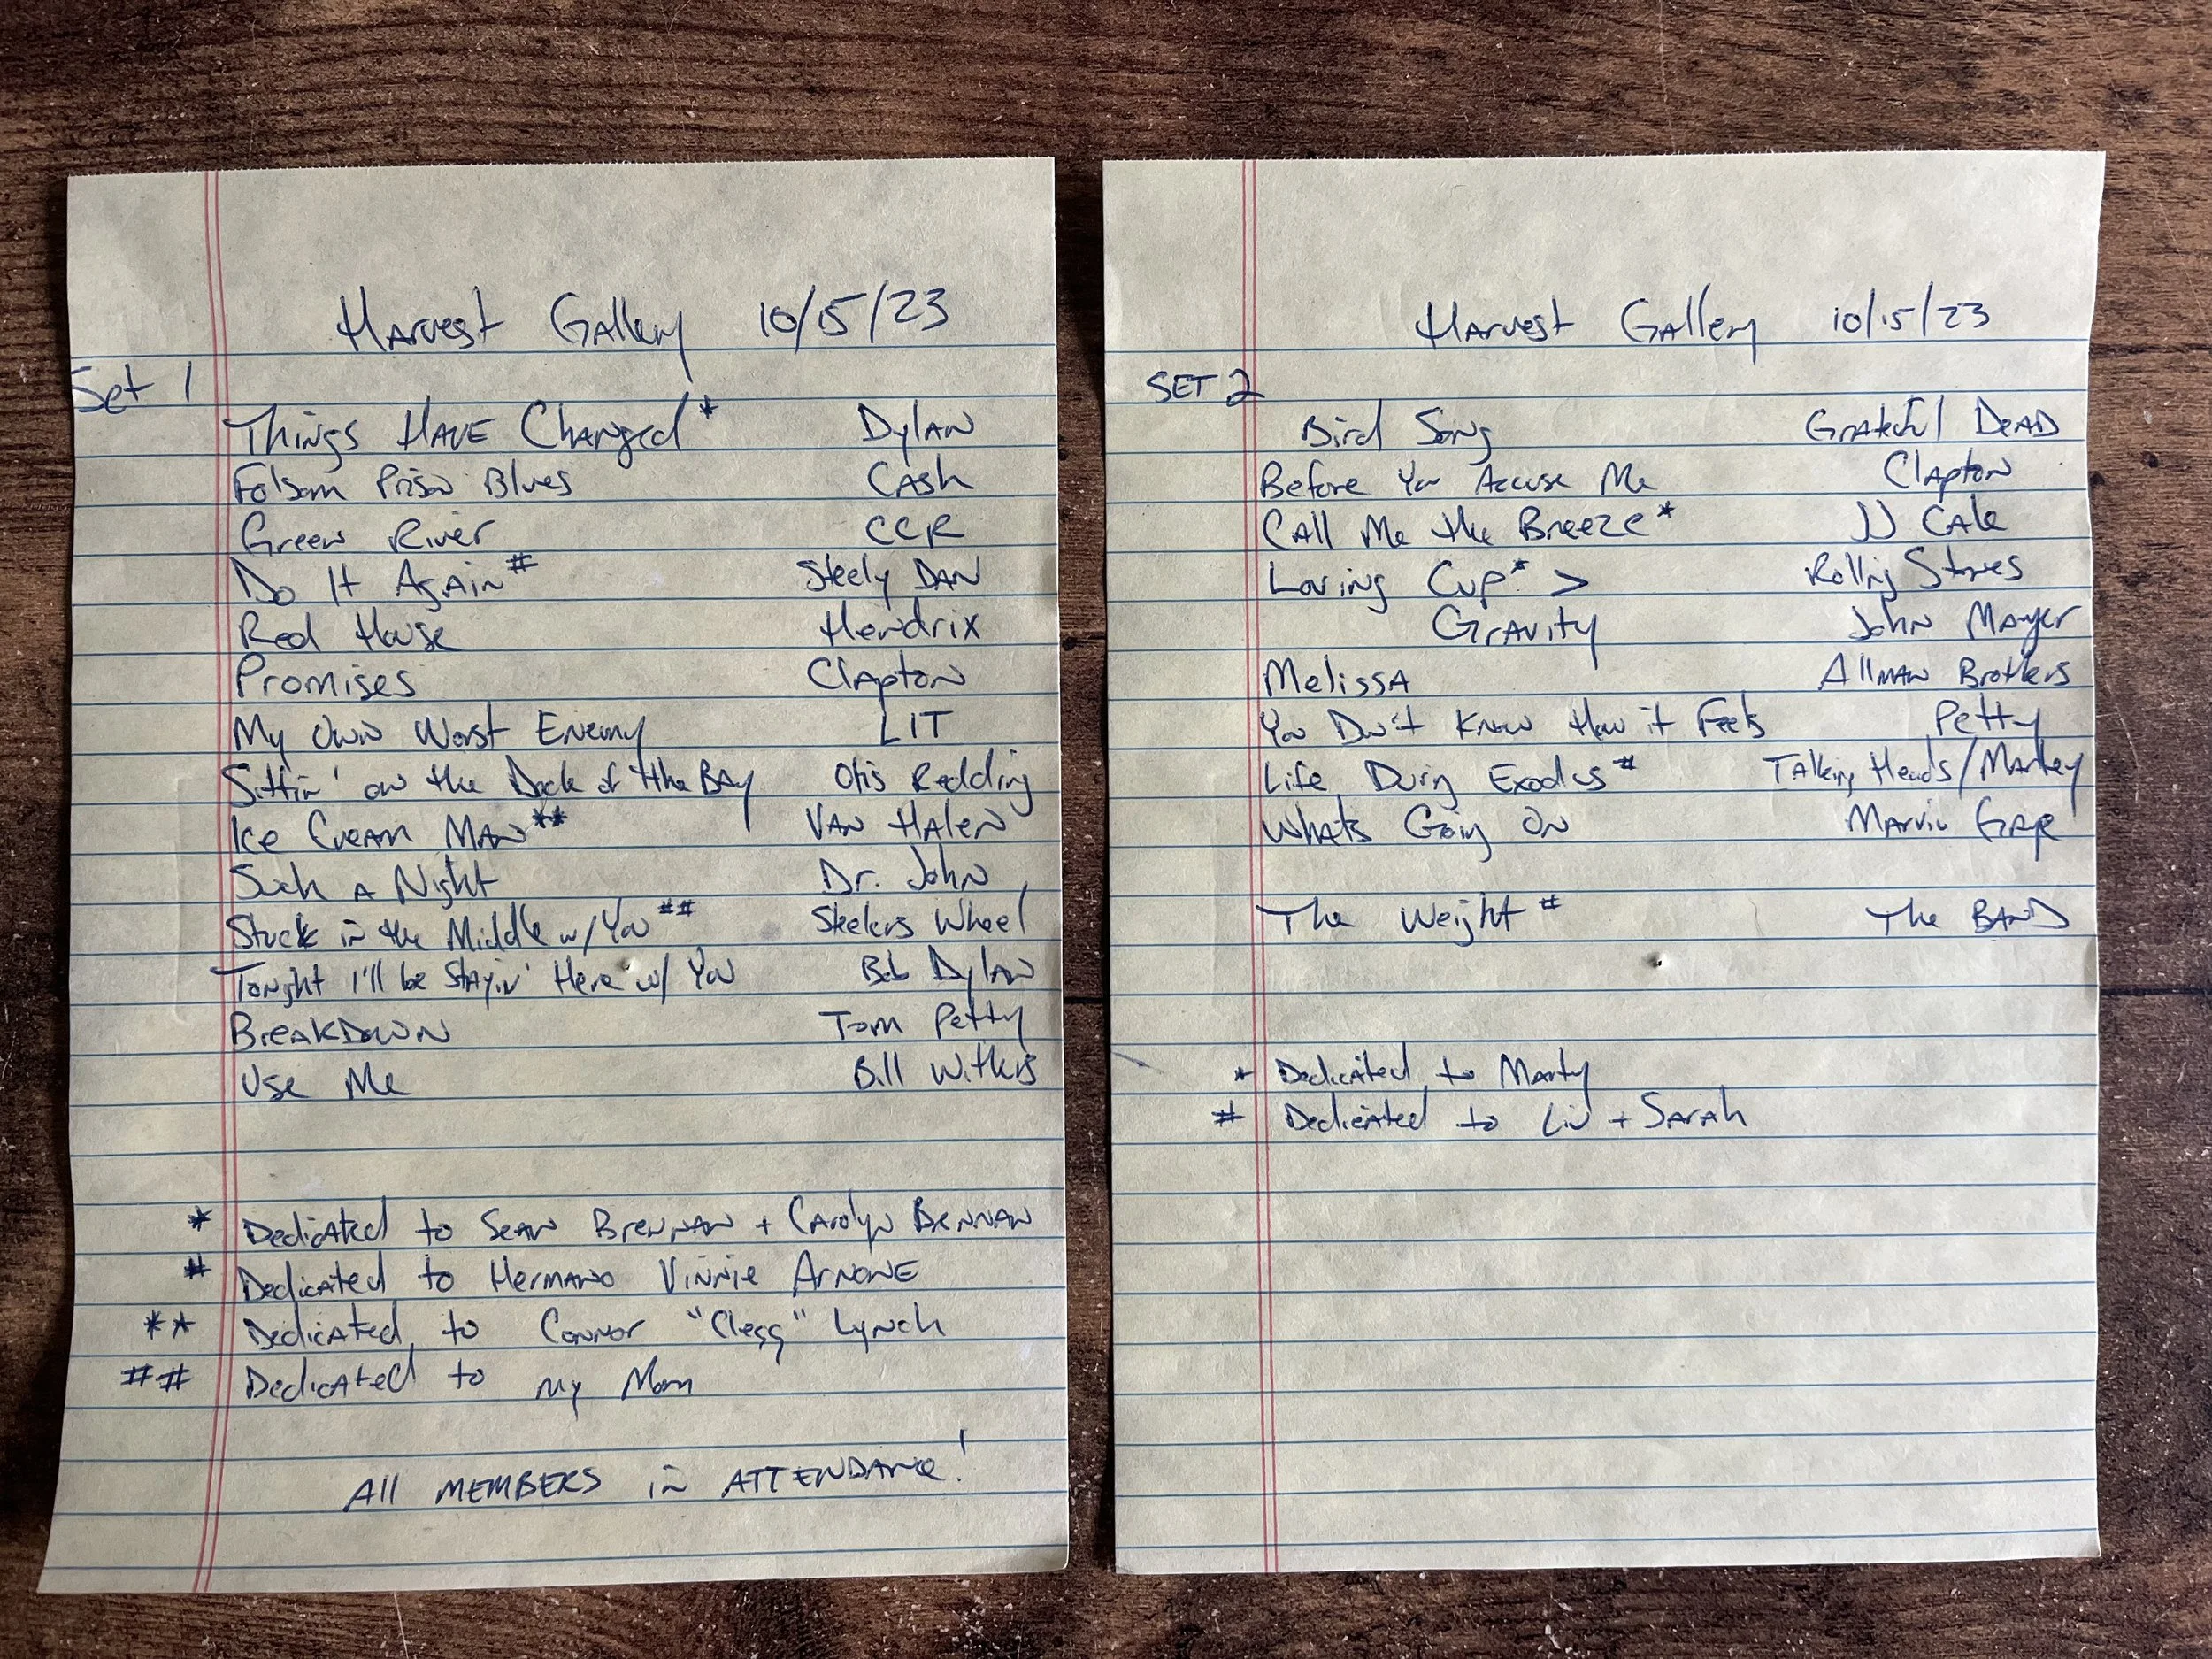 Harvest Gallery 10/15/23
Set 1
Things Have Changed* Dylan
Folsom Prison Blues Cash
Green River CCR
Do It Again# Steely Dan
Red House Hendrix
Promises Clapton
My Own Worst Enemy LIT
Sittin' on the Dock of the Bay Otis Redding
Ice Cream Man** Van Halen
Such a Night Dr. John
Stuck in the Middle w/ You## Steelers Wheel
Tonight I'll be Stayin' Here w/ You Bob Dylan
Breakdown Tom Petty
Use Me Bill Withers
* Dedicated to Sean Brennan + Carolyn Brennan
# Dedicated to Hermano Vinnie Arnone
** Dedicated to Connor "Clegg" Lynch
## Dedicated to my Mom
All MEMBERS in ATTENDANCE!
Harvest Gallery 10/15/23
SET 2
Bird Song Grateful Dead
Before You Accuse Me Clapton
Call Me the Breeze* JJ Cale
Loving Cup* > Rolling Stones
Gravity John Mayer
Melissa Allman Brothers
You Don't Know How it Feels Petty
Life During Exodus# Talking Heads/Marley
Whats Going On Marvin Gaye
The Weight# The BAND
* Dedicated to Marty
# Dedicated to Liv + Sarah